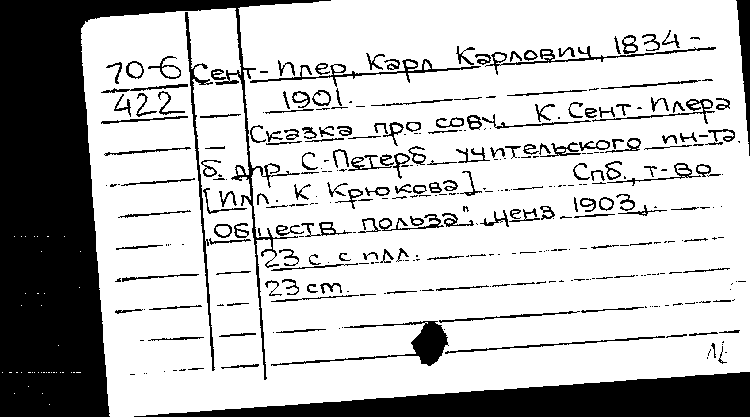 70-6 Сент-Илер, Карл Карлович, 1834-
422 1901.
Сказка про сову. К. Сент-Илера
б. дир. С-Петерб. учительского ин-та.
[Илл. К. Крюкова]. Спб., т-во
"Обществ. польза", ценз. 1903.
23 с. с илл.
23 cm.